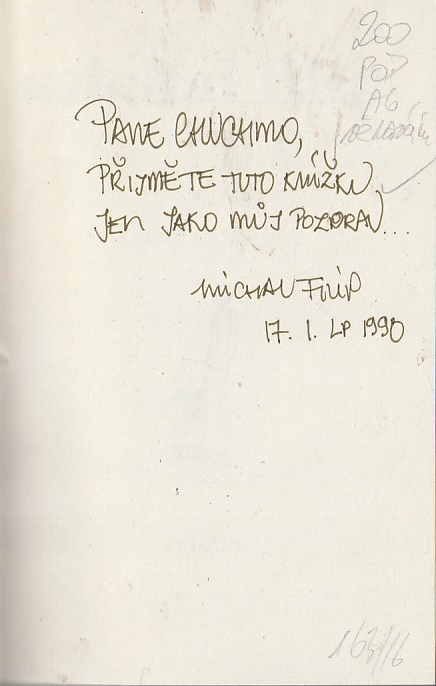 200
PANE CHUCHMO,
PŘIJMĚTE TUTO KNÍŽKU
JEN JAKO MŮJ POZDRAV...
MICHAL FILIP
17. 1. LP 1990
163/16